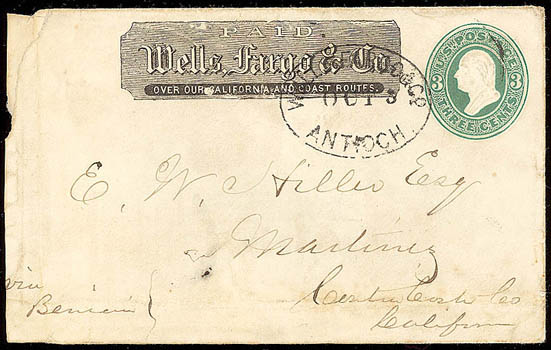 PAID
Wells, Fargo & Co.
OVER OUR CALIFORNIA AND COAST ROUTES.
WELLS FARGO & CO
OCT 3
ANTIOCH
U.S. POSTAGE
3 3
THREE CENTS
E. W. Hiller Esq
Martinez
via
Benicia
Contra Costa Co
California